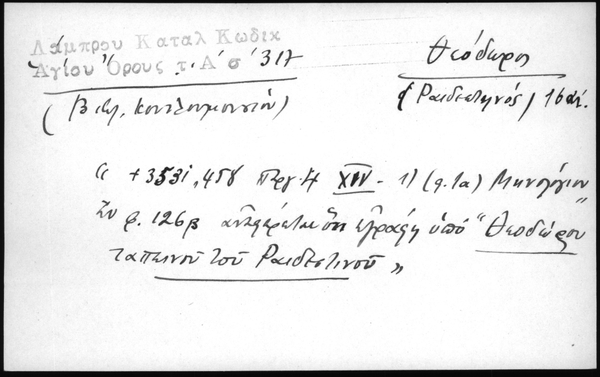 Λάμπρου Καταλ Κωδικ
Αγίου Όρους τ. Α΄ σ΄ 317
Θεόδωρος
(Βιβλ. Κουτλουμουσίου)
(Ραιδεστηνός) 16 αἰ.
" + 3531, 458 Περγ. 4 XIV - 1) (φ. 1α) Μηνολόγιον"
Ἐν φ. 126β ἀναφέρεται ὅτι ἐγράφη ὑπό "Θεοδώρου
ταπεινοῦ τοῦ Ραιδεστινοῦ"